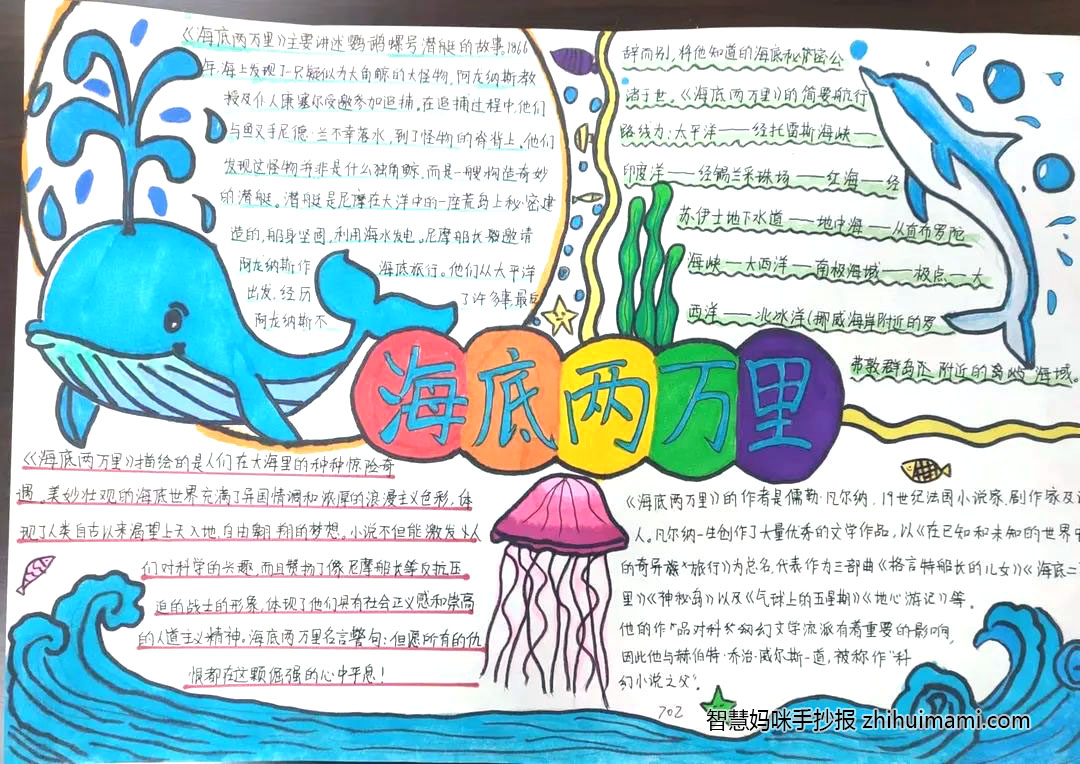 《海底两万里》主要讲述鹦鹉螺号潜艇的故事。1866
年,海上发现了一只疑似为大角鲸的大怪物,阿龙纳斯教
授及仆人康塞尔受邀参加追捕。在追捕过程中,他们
与鱼叉手尼德·兰不幸落水,到了怪物的脊背上。他们
发现这怪物并非是什么独角鲸,而是一艘构造奇妙
的潜艇。潜艇是尼摩在大洋中的一座荒岛上秘密建
造的,船身坚固,利用海水发电。尼摩船长邀请
阿龙纳斯作 海底旅行。他们从太平洋
出发,经历 了许多事,最后
阿龙纳斯不
辞而别,将他知道的海底秘密公
诸于世。《海底两万里》的简要航行
路线为:太平洋——经托雷斯海峡——
印度洋——经锡兰采珠场——红海——经
苏伊士地下水道——地中海——从直布罗陀
海峡——大西洋——南极海域——极点——大
西洋——北冰洋(挪威海岸附近的罗
弗敦群岛 附近的 海域。
海底两万里
《海底两万里》描绘的是人们在大海里的种种惊险奇
遇。美妙壮观的海底世界充满了异国情调和浓厚的浪漫主义色彩,体
现了人类自古以来渴望上天入地、自由翱翔的梦想。小说不但能激发人
们对科学的兴趣,而且赞扬了像尼摩船长等反抗压
迫的战士的形象,体现了他们具有社会正义感和崇高
的人道主义精神。海底两万里名言警句:但愿所有的仇
恨都在这颗倔强的心中平息!
《海底两万里》的作者是儒勒·凡尔纳,19世纪法国小说家、剧作家及
人。凡尔纳一生创作了大量优秀的文学作品,以《在已知和未知的世界中
的奇异旅行》为总名,代表作为三部曲《格兰特船长的儿女》《海底二
里》《神秘岛》以及《气球上的五星期》《地心游记》等。
他的作品对科幻文学流派有着重要的影响,
因此他与赫伯特·乔治·威尔斯一道,被称作“科
幻小说之父”。
702
智慧妈咪手抄报 zhihuimami.com